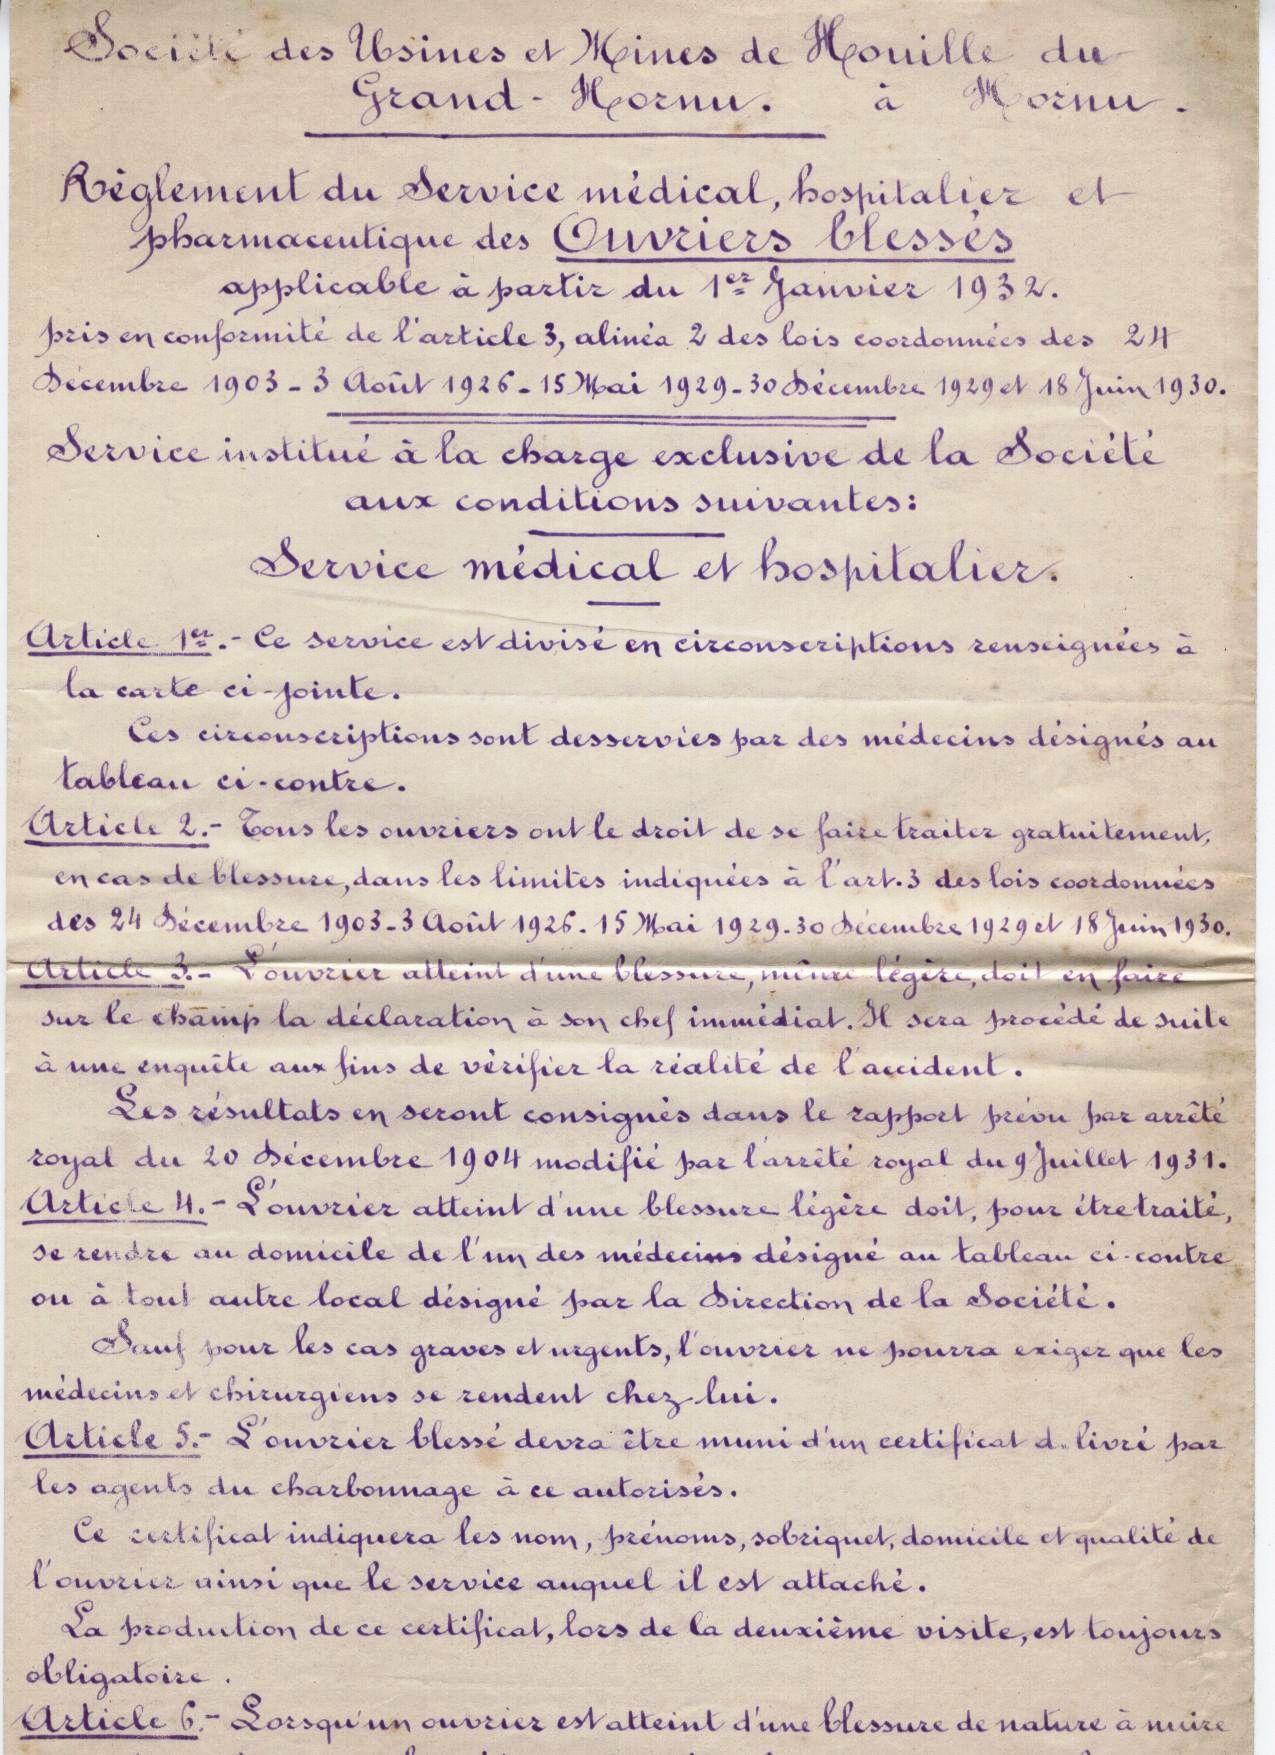 Société des Usines et Mines de Houille du
Grand-Hornu. à Hornu.
Règlement du Service médical, hospitalier et
pharmaceutique des Ouvriers blessés
applicable à partir du 1er Janvier 1932.
pris en conformité de l'article 3, alinéa 2 des lois coordonnées des 24
Décembre 1903 - 3 Août 1926 - 15 Mai 1929 - 30 Décembre 1929 et 18 Juin 1930.
Service institué à la charge exclusive de la Société
aux conditions suivantes:
Service médical et hospitalier.
Article 1er.- Ce service est divisé en circonscriptions renseignées à
la carte ci-jointe.
Ces circonscriptions sont desservies par des médecins désignés au
tableau ci-contre.
Article 2.- Tous les ouvriers ont le droit de se faire traiter gratuitement,
en cas de blessure, dans les limites indiquées à l'art. 3 des lois coordonnées
des 24 Décembre 1903 - 3 Août 1926. 15 Mai 1929. 30 Décembre 1929 et 18 Juin 1930.
Article 3.- L'ouvrier atteint d'une blessure, même légère, doit en faire
sur le champ la déclaration à son chef immédiat. Il sera procédé de suite
à une enquête aux fins de vérifier la réalité de l'accident.
Les résultats en seront consignés dans le rapport prévu par arrêté
royal du 20 Décembre 1904 modifié par l'arrêté royal du 9 Juillet 1931.
Article 4.- L'ouvrier atteint d'une blessure légère doit, pour être traité,
se rendre au domicile de l'un des médecins désigné au tableau ci-contre
ou à tout autre local désigné par la Direction de la Société.
Sauf pour les cas graves et urgents, l'ouvrier ne pourra exiger que les
médecins et chirurgiens se rendent chez lui.
Article 5.- L'ouvrier blessé devra être muni d'un certificat délivré par
les agents du charbonnage à ce autorisés.
Ce certificat indiquera les nom, prénoms, sobriquet, domicile et qualité de
l'ouvrier ainsi que le service auquel il est attaché.
La production de ce certificat, lors de la deuxième visite, est toujours
obligatoire.
Article 6.- Lorsqu'un ouvrier est atteint d'une blessure de nature à nuire